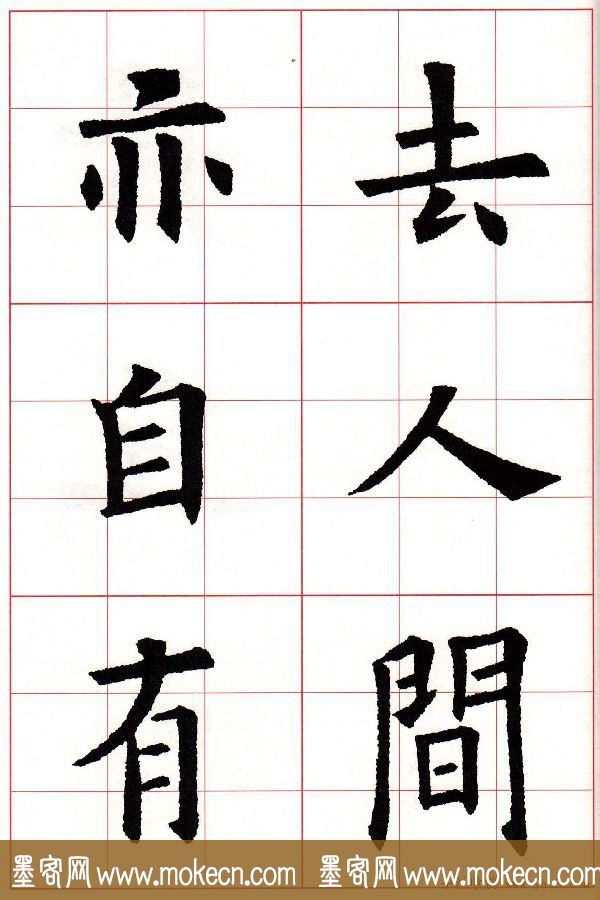 去人間
亦自有
墨客网 www.mokecn.com 墨客网 www.mokecn.com